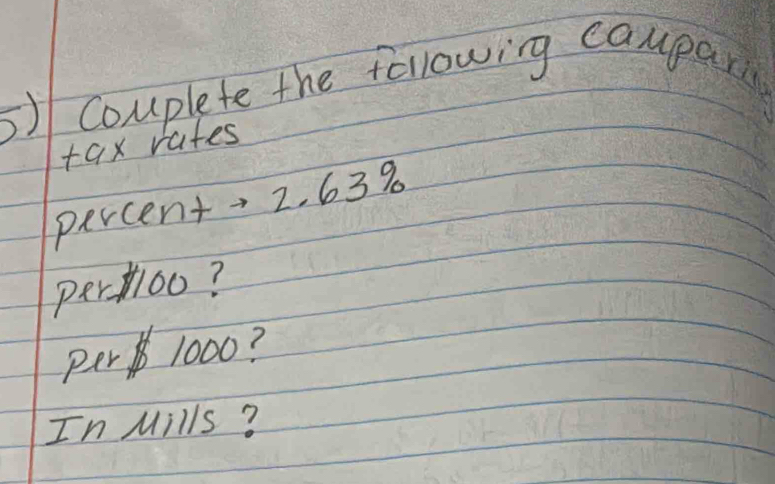 5) Complete the following comparing
tax rates
percent → 2.63%
per $100?
per $ 1000?
In Mills?